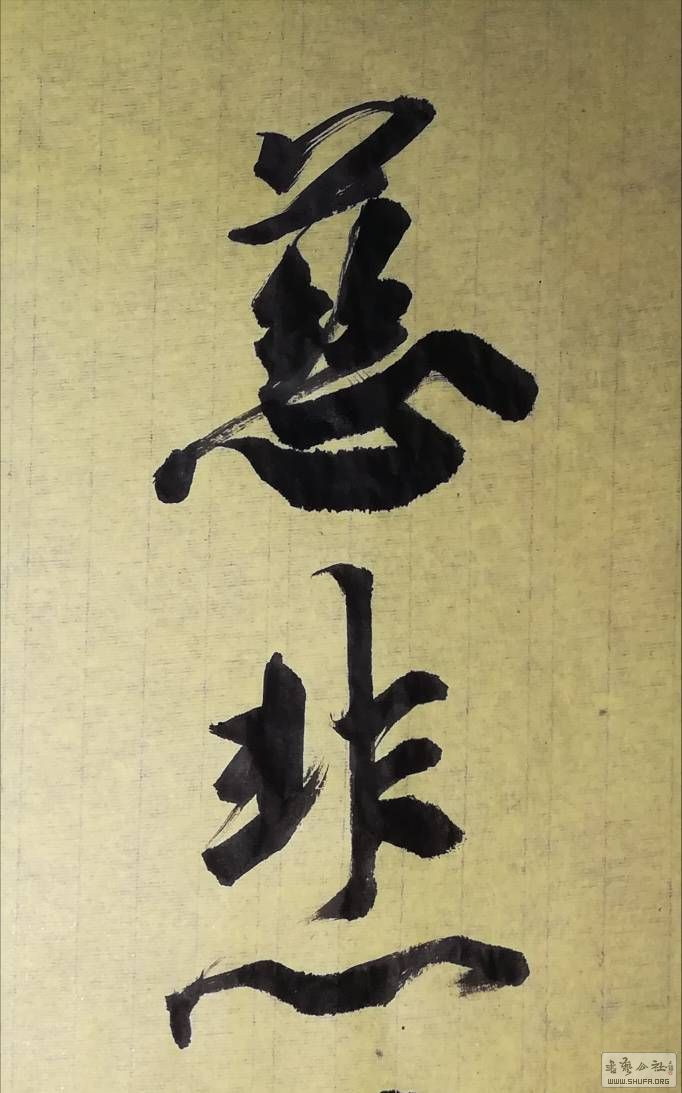 慈悲
书艺公社
WWW.SHUFA.ORG